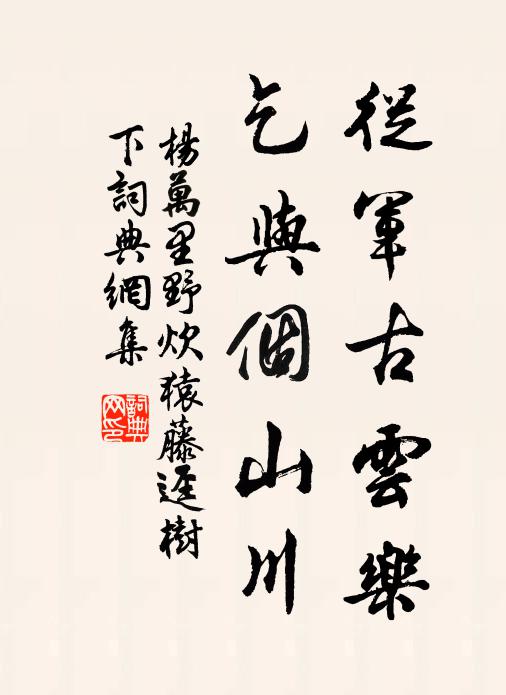 從軍古雲樂
乞與個山川
楊萬里野炊猿藤逕樹
下詞典網集
詞典网印